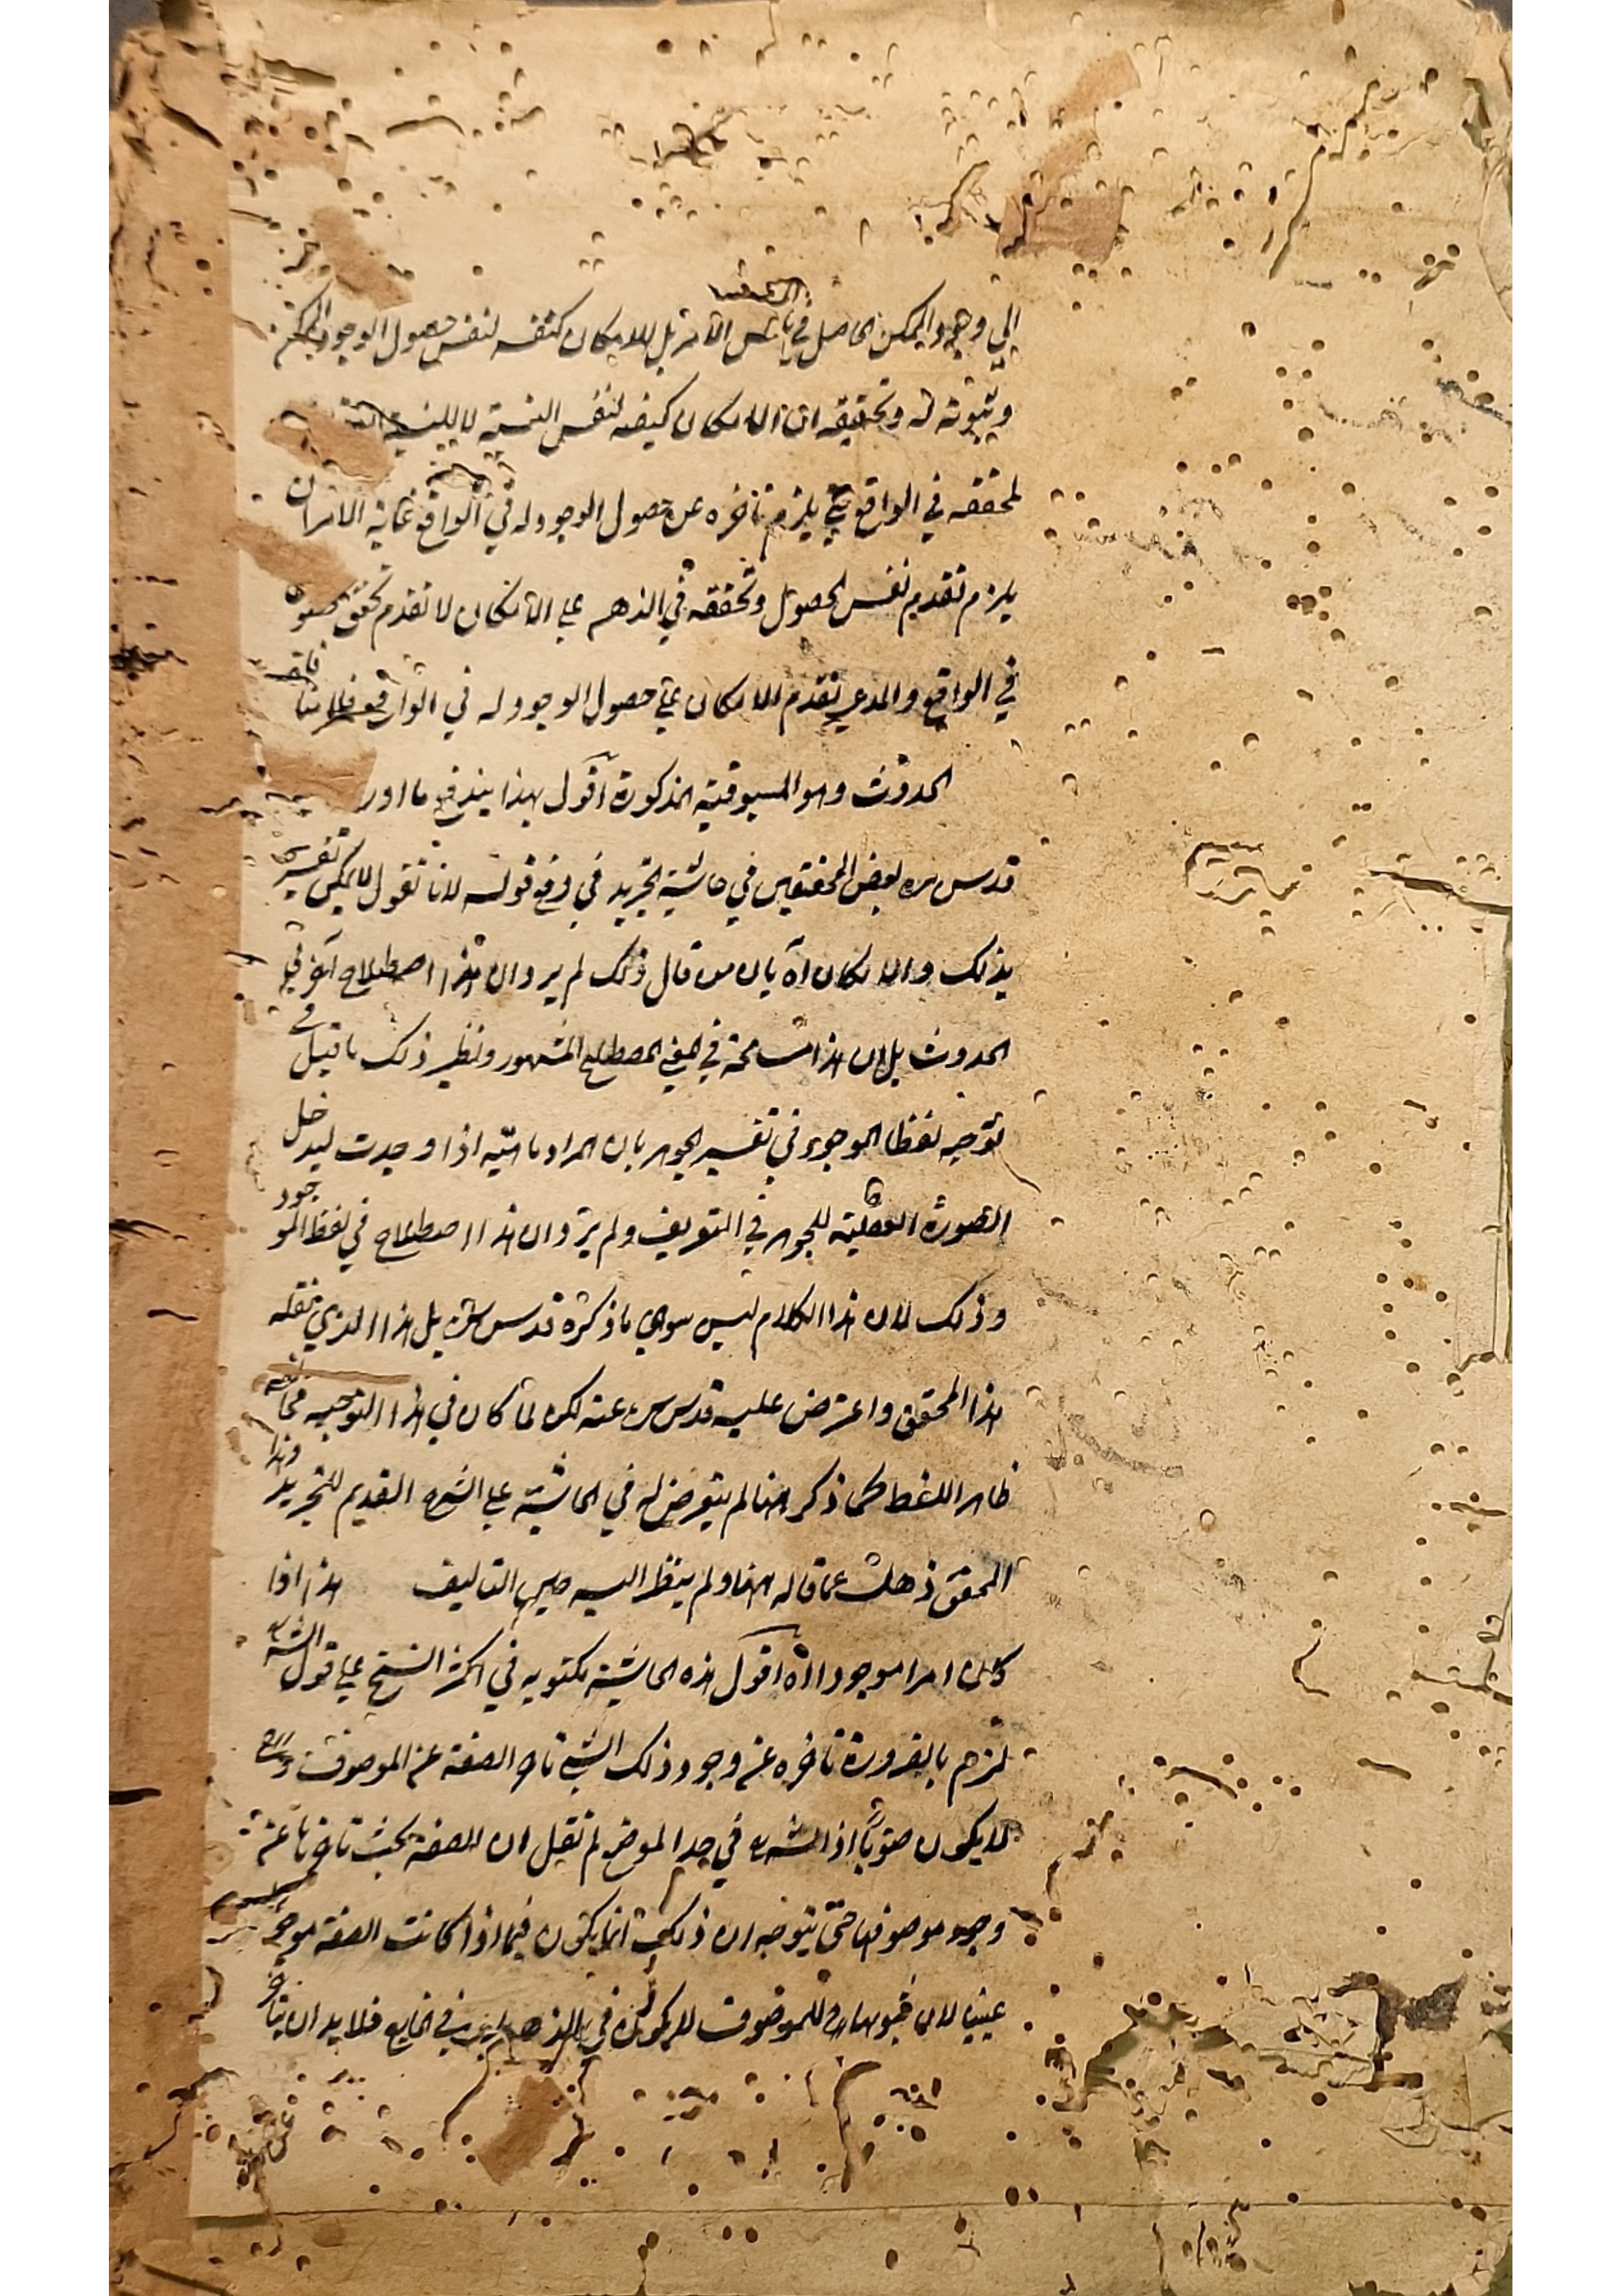 الى وجود الممكن الحاصل في نفس الامر بل الامكان كيفية لنفس حصول الوجود
وثبوته له وتحقيقه ان الامكان كيفية لنفس النسبة لا للنسبة
لتحققه في الواقع حتى يلزم تاخره عن حصول الوجود له في الواقع غاية الامر ان
يلزم تقديم نفس الحصول وتحققه في الذهن على الامكان لا تقدم تحقق الحصول
في الواقع والمدعي تقدم الامكان على حصول الوجود له في الواقع فلا منافاة
الحدوث وهو المسبوقية المذكورة اقول بهذا يندفع ما اورد
قدس سره بعض المحققين في حاشية التجريد في دفع قوله لانا نقول لا يمكن تفسير
بذلك والامكان آه بان من قال ذلك لم يرد ان هذا اصطلاح آخر في
الحدوث بل ان هذا مسامحة في المعنى المصطلح المشهور ونظير ذلك ما قيل في
توجيه لفظ الموجود في تفسير الجوهر بان المراد ماهية اذا وجدت ليدخل
الصورة العقلية للجوهر في التعريف ولم يرد ان هذا اصطلاح في لفظ الموجود
وذلك لان هذا الكلام ليس سوى ما ذكره قدس سره بل هذا الذي نقله
هذا المحقق واعترض عليه قدس سره عنه لكن لما كان في هذا التوجيه مخالفة
ظاهر اللفظ كما ذكر هنا لم يتعرض له في الحاشية على الشرح القديم للتجريد وهذا
المحقق ذهل عما قاله هنا ولم ينظر اليه حين التاليف هذا اذا
كان امرا موجودا آه اقول هذه الحاشية مكتوبة في اكثر النسخ على قول الش
لزم بالضرورة تاخره عن وجود ذلك الشئ تاخر الصفة عن الموصوف وح
لا يكون صوابا اذ الش في هذا الموضع لم يقل ان الصفة يجب تاخرها عن
وجود موصوفها حتى يتوجه ان ذلك انما يكون فيما اذا كانت الصفة موجودة
عينيا لان ثبوتها للموصوف لا يكون في الذهن بل في الخارج فلا بد ان يتاخر